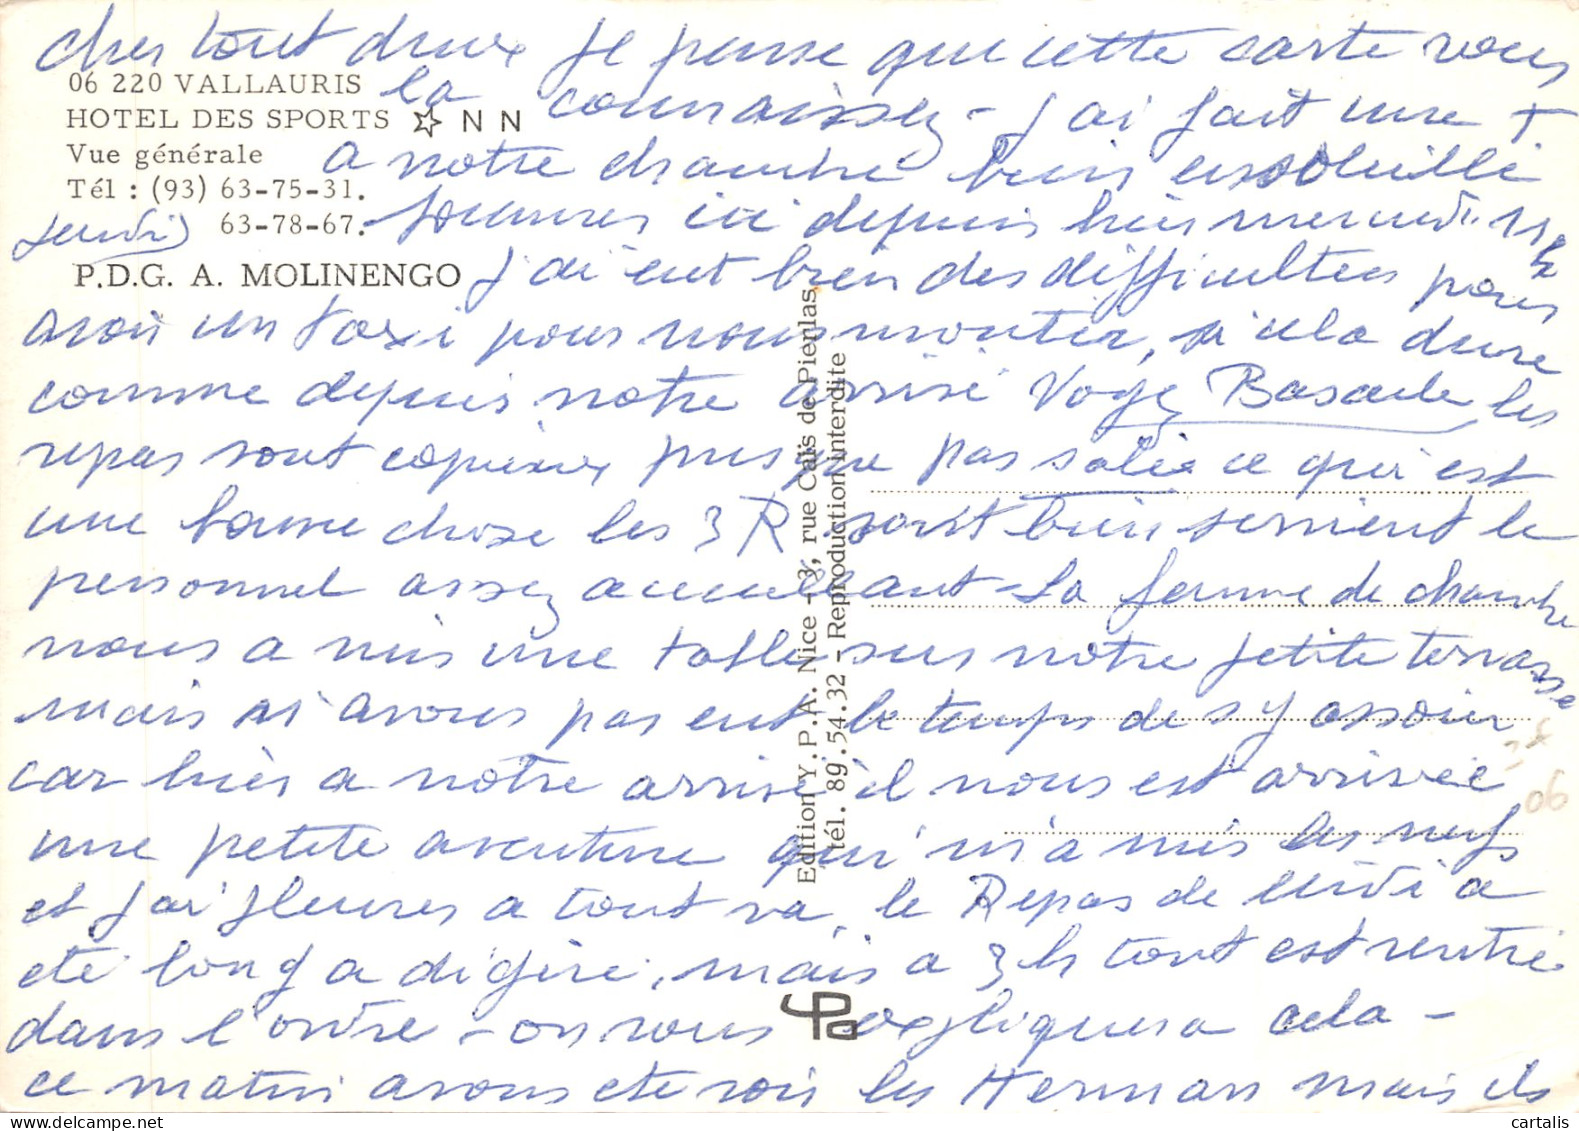 chers tout deux je pense que cette carte vous
06 220 VALLAURIS
la connaissez - j'ai fait une +
HOTEL DES SPORTS ☆ N N
Vue générale
a notre chambre bien ensoleillé
Tél : (93) 63-75-31.
63-78-67.
jeudi) sommes ici depuis hier mercredi
P.D.G. A. MOLINENGO
j'ai eut bien des difficultees pour
avoir un taxi pour nous monter, si cela dure
comme depuis notre arrivé Voyez Bascule les
repas sont copieux presque pas salée ce qui est
une bonne chose les 3 R sont bien servient le
personnel assez accueillant - La femme de chambre
nous a mis une table sur notre petite terrasse
mais ni avons pas eut le temps de s'y assoir
car hièr a notre arrivé il nous est arrivée
une petite aventure qui m'a mis les nerfs
et j'ai pleures a tout va, le Repas de lundi a
ete long a digéré, mais a 3 h tout est rentré
dans l'ordre - on vous expliquera cela -
ce matin avons ete voir les Herman mais ils
Edition Y.P.A. Nice - 3, rue Caïs de Pierlas
tél. 89.54.32 - Reproduction interdite
YPa
06
cartalis